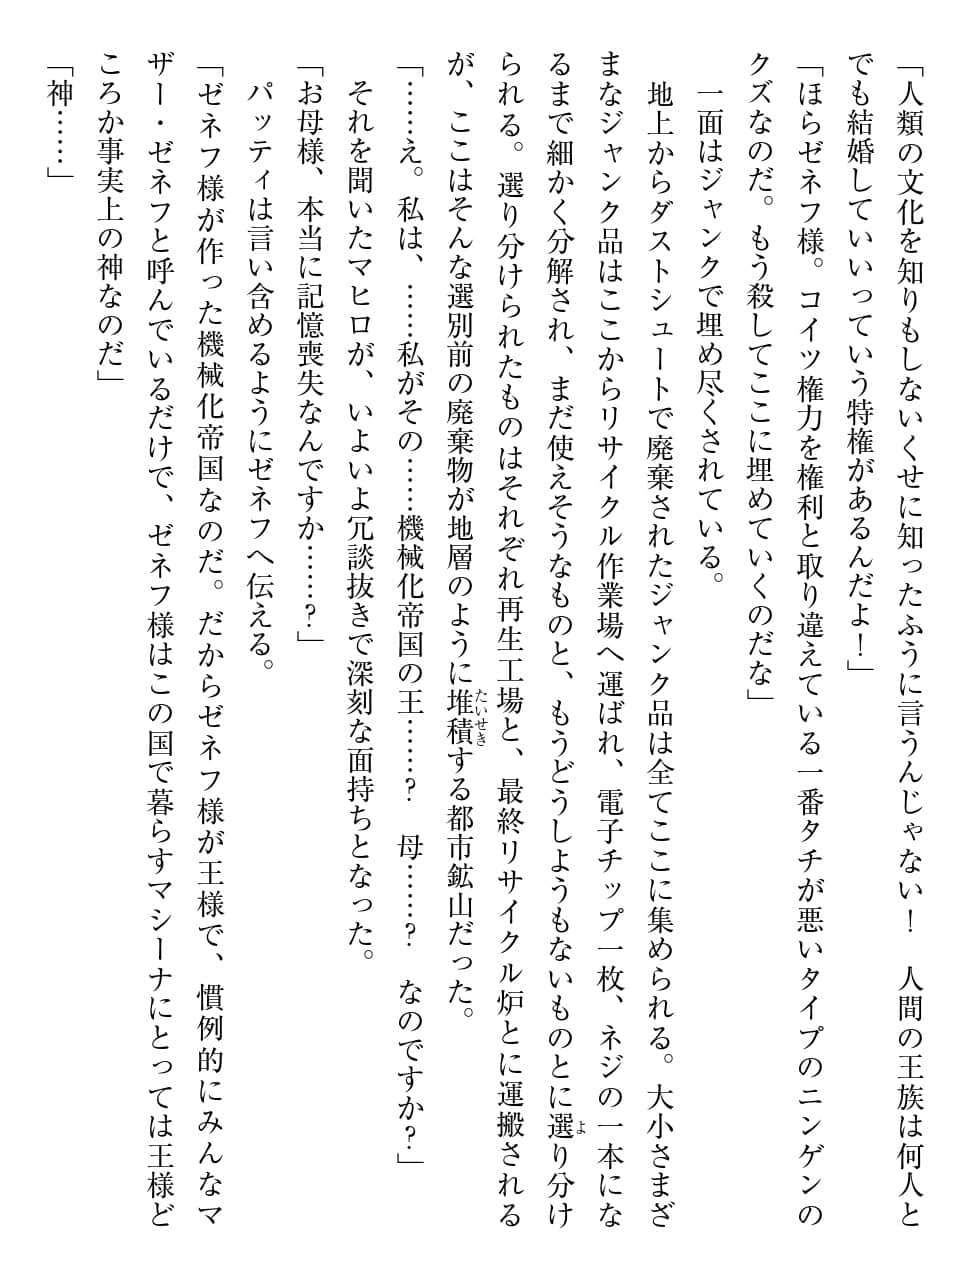 「人類の文化を知りもしないくせに知ったふうに言うんじゃない！　人間の王族は何人と
でも結婚していいっていう特権があるんだよ！」
「ほらゼネフ様。コイツ権力を権利と取り違えている一番タチが悪いタイプのニンゲンの
クズなのだ。もう殺してここに埋めていくのだな」
　一面はジャンクで埋め尽くされている。
　地上からダストシュートで廃棄されたジャンク品は全てここに集められる。大小さまざ
まなジャンク品はここからリサイクル作業場へ運ばれ、電子チップ一枚、ネジの一本にな
るまで細かく分解され、まだ使えそうなものと、もうどうしようもないものとに選り分け
られる。選り分けられたものはそれぞれ再生工場と、最終リサイクル炉とに運搬される
が、ここはそんな選別前の廃棄物が地層のように堆積する都市鉱山だった。
「……え。私は、……私がその……機械化帝国の王……？　母……？　なのですか？」
　それを聞いたマヒロが、いよいよ冗談抜きで深刻な面持ちとなった。
「お母様、本当に記憶喪失なんですか……？」
　パッティは言い含めるようにゼネフへ伝える。
「ゼネフ様が作った機械化帝国なのだ。だからゼネフ様が王様で、慣例的にみんなマ
ザー・ゼネフと呼んでいるだけで、ゼネフ様はこの国で暮らすマシーナにとっては王様ど
ころか事実上の神なのだ」
「神……」